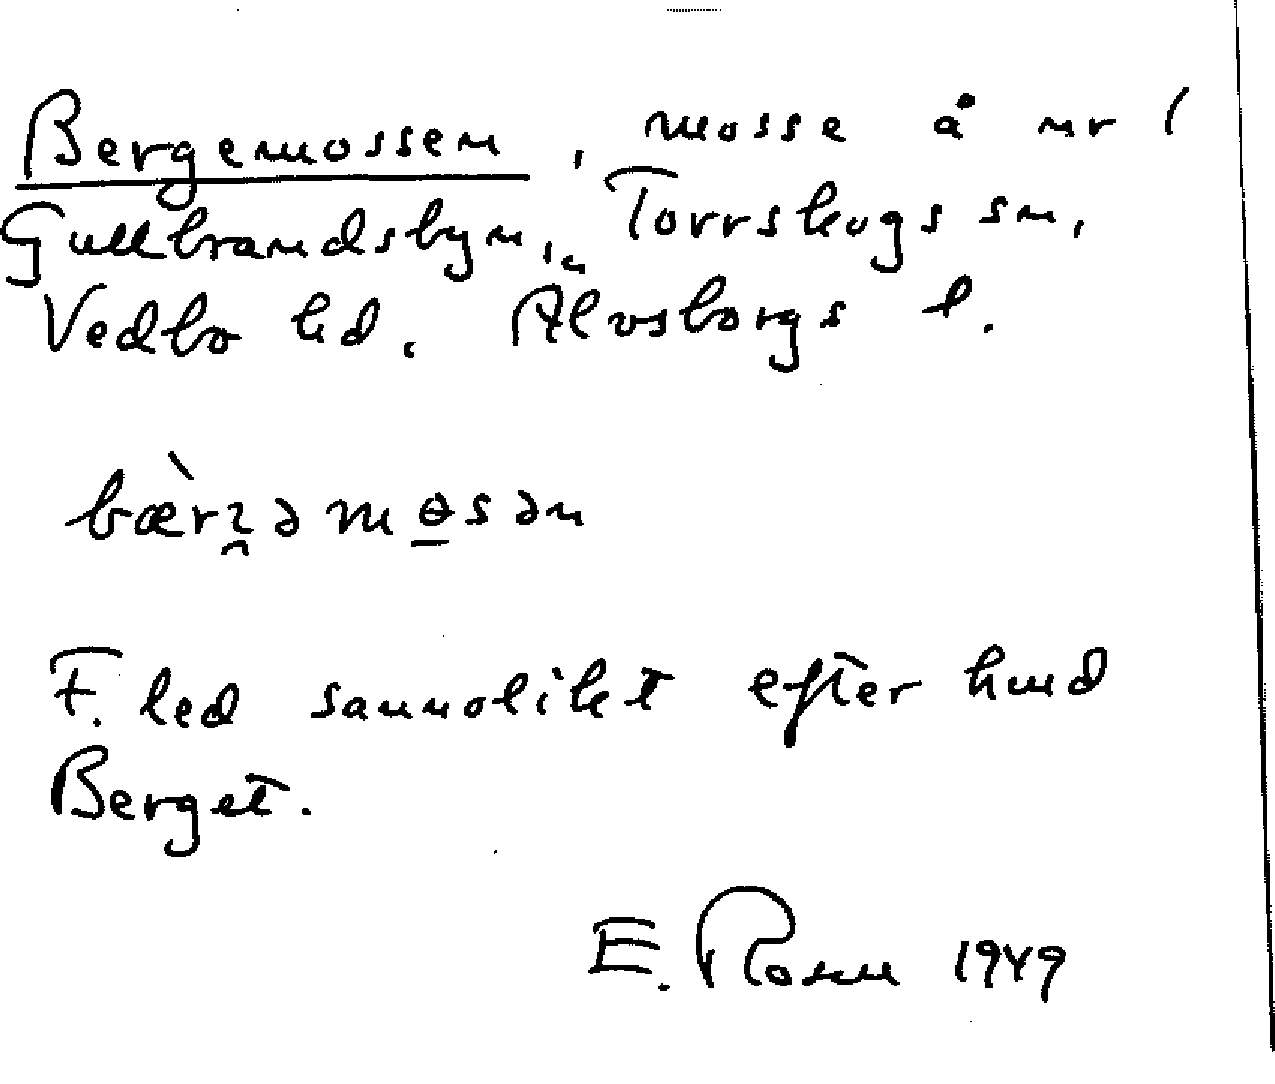 Bergemossen, mosse å nr 1
Gullbrandsbyn, Torrskogs sn,
Vedbo hd, Älvsborgs l.
F. led sannolikt efter hmd
Berget.
E. Rosén 1949